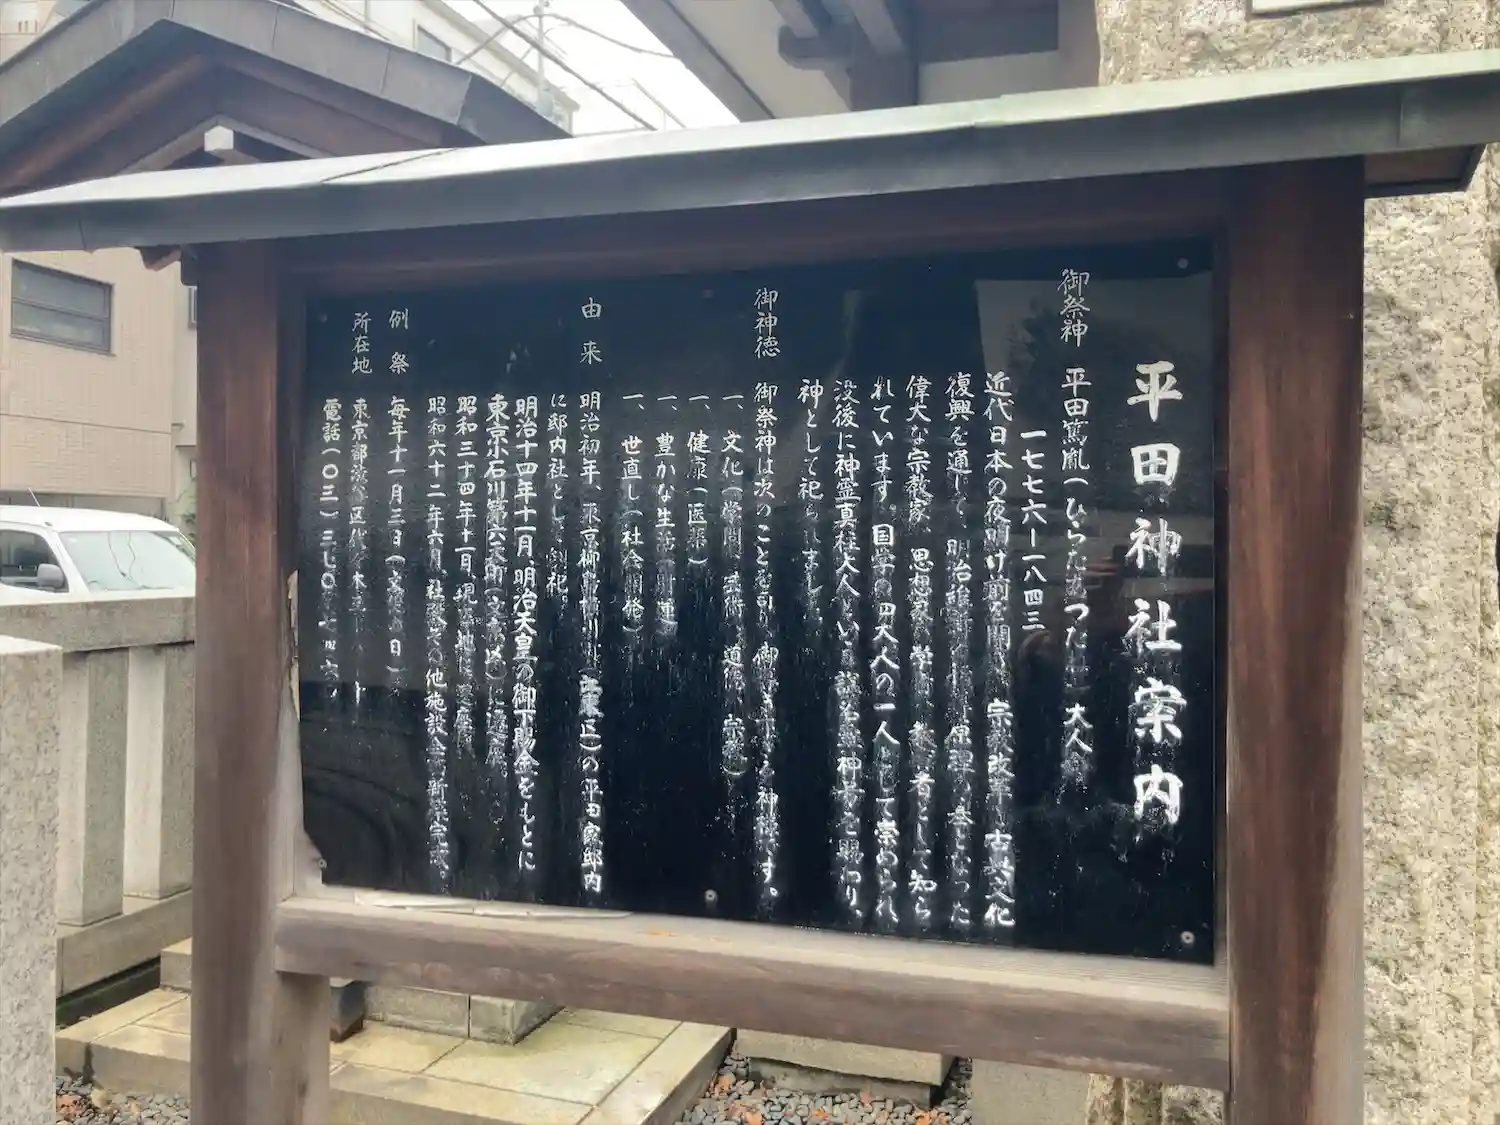 平田神社案内
御祭神 平田篤胤(ひらたあつたね)大人命
一七七六ー一八四三
近代日本の夜明け前を開 宗教改革 古典文化
復興を通じて、明治維新 原理 となった
偉大な宗教家、思想家、学者、教育者として知ら
れています。国学の四大人の一人として崇められ
没後に神霊真柱大人という諡名と神号を賜わり、
神として祀られました。
御神徳 御祭神は次のことを司り、御導き下さる神様です。
一、文化(学問、武術、道徳、宗教)
一、健康(医薬)
一、豊かな生活(開運)
一、世直し(社会開発)
由来 明治初年、東京柳 の平田家邸内
に邸内社として創祀。
明治十四年十一月、明治天皇の御下賜金をもとに
東京小石川第六天町(文京区)に遷座。
昭和三十四年十一月、現在地に遷座。
昭和六十二年六月、社殿その他施設全て新築完成。
例祭 毎年十一月三日(文化の日)
所在地 東京都渋谷区代々木
電話(〇三)三七〇